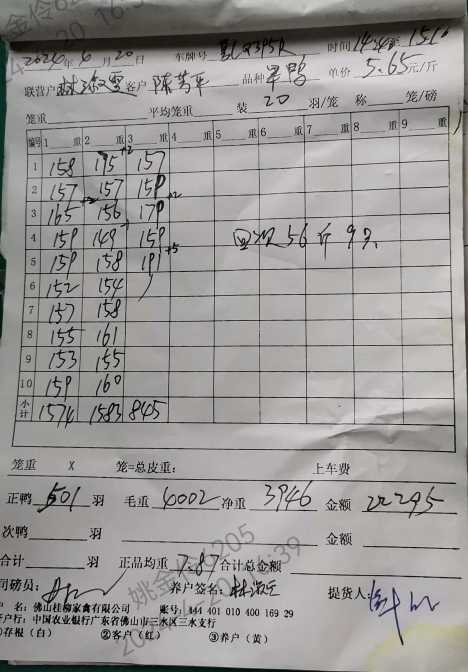 2024年6月20日 车牌号 时间14:24至1510
联营户 林淑雪 客户 陈芳平 品种 单鸭 单价 5.65元/斤
笼重 平均笼重 装 20 羽/笼 称 笼/磅
编号 1 重 2 重 3 重 4 重 5 重 6 重 7 重 8 重 9 重
1 158 175 +2 157
2 157 157 159
3 165 +2 156 170 +2
4 159 149 + 159 回收56斤9只
5 159 158 191 +5
6 152 154
7 157 158
8 155 161
9 153 155
10 159 160
小计 1574 1583 845
笼重 X 笼=总皮重: 上车费
正鸭 501 羽 毛重 4002 净重 3946 金额 22295
次鸭 羽 金额
合计 羽 正品均重 7.87 合计总金额
司磅员: 养户签名: 提货人:
户 名: 佛山桂柳家禽有限公司 账号: 444 401 010 400 169 29
开户行: 中国农业银行广东省佛山市三水区三水支行
①存根(白) ②客户(红) ③养户(黄)